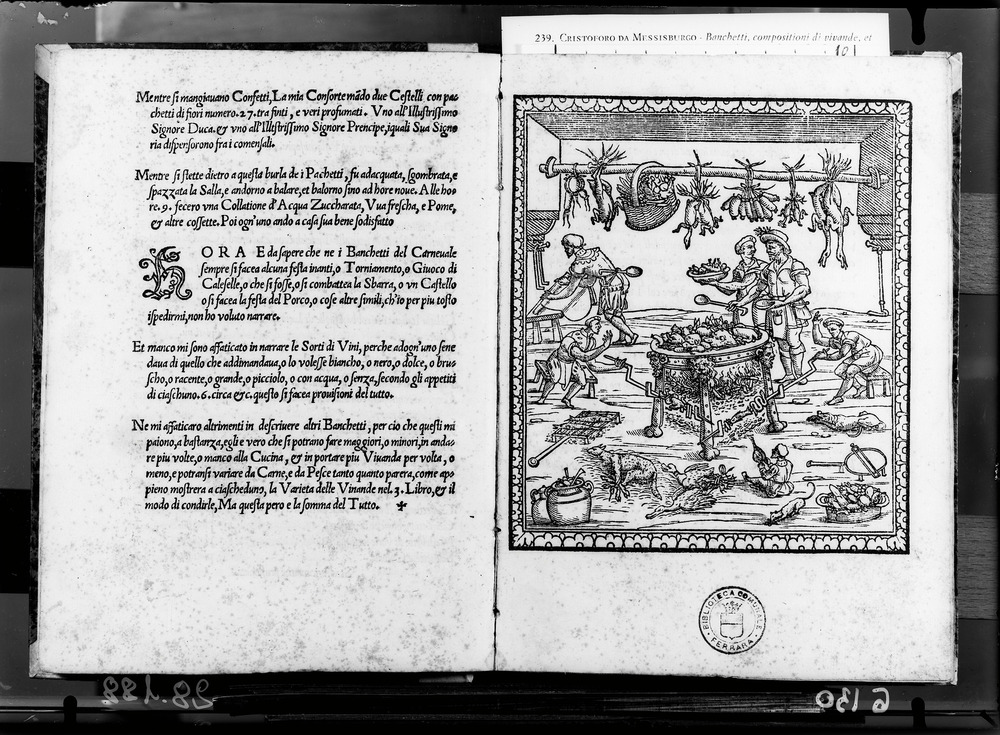 239. CRISTOFORO DA MESSISBURGO - Banchetti, compositioni di vivande, et
101
Mentre si mangiauano Confetti, La mia Consorte mãdo due Cestelli con pac
chetti di fiori numero. 27. tra finti, e veri profumati. Vno all'Illustrissimo
Signore Duca. & vno all'Illustrissimo Signore Prencipe, iquali Sua Signo
ria dispensorono fra i comensali.
Mentre si stette dietro a questa burla de i Pachetti, fu adacquata, sgombrata, e
spazzata la Salla, e andorno a balare, et balorno sino ad hore noue. Alle ho
re. 9. fecero vna Collatione d'Acqua Zuccharata, Vua frescha, e Pome,
& altre cossette. Poi ogn'uno ando a casa sua bene sodisfatto
HORA E da sapere che ne i Banchetti del Carneuale
sempre si facea alcuna festa inanti, o Torniamento, o Giuoco di
Caleselle, o che si fosse, o si combattea la Sbarra, o vn Castello
o si facea la festa del Porco, o cose altre simili, ch'io per piu tosto
ispedirmi, non ho voluto narrare.
Et manco mi sono affaticato in narrare le Sorti di Vini, perche adogn'uno sene
daua di quello che addimandaua, o lo volesse biancho, o nero, o dolce, o bru-
scho, o racente, o grande, o picciolo, o con acqua, o senza, secondo gli appetiti
di ciaschuno. 6. circa &c. questo si facea prouisioni del tutto.
Ne mi affaticaro altrimenti in descriuere altri Banchetti, per cio che questi mi
paiono, a bastanza, egli e vero che si potrano fare maggiori, o minori, in anda-
re piu volte, o manco alla Cucina, & in portare piu Viuanda per volta, o
meno, e potransi variare da Carne, e da Pesce tanto quanto parera, come ap-
pieno mostrera a ciascheduno, la Varieta delle Viuande nel. 3. Libro, & il
modo di condirle, Ma questa pero e la somma del Tutto.
BIBLIOTECA COMUNALE
FERRARA
28.188
G 130